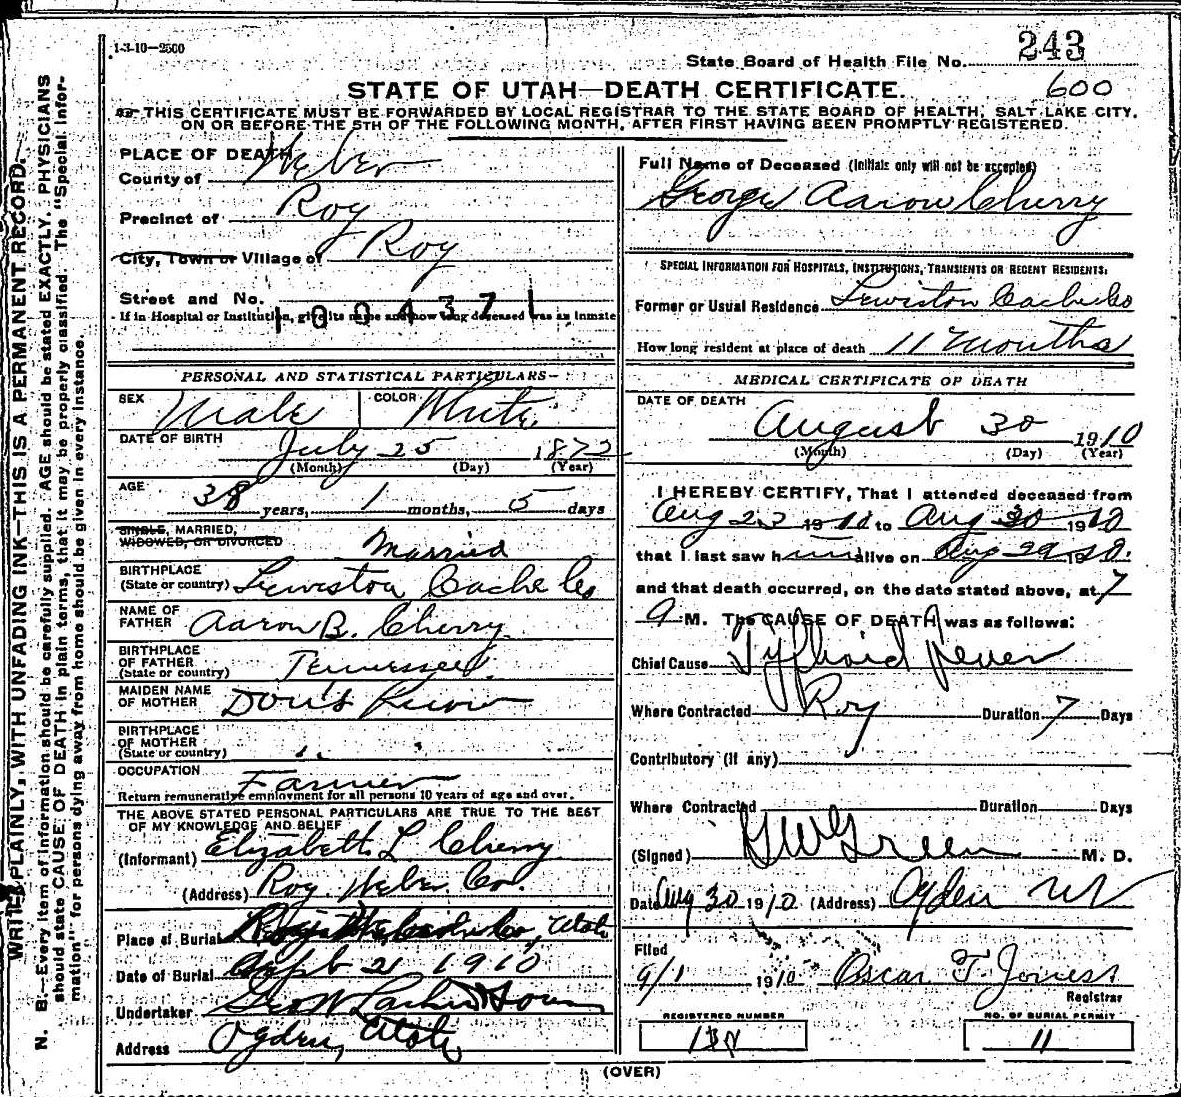 1-3-10—2500
State Board of Health File No. 243
600
STATE OF UTAH—DEATH CERTIFICATE.
THIS CERTIFICATE MUST BE FORWARDED BY LOCAL REGISTRAR TO THE STATE BOARD OF HEALTH, SALT LAKE CITY,
ON OR BEFORE THE 5TH OF THE FOLLOWING MONTH, AFTER FIRST HAVING BEEN PROMPTLY REGISTERED.
WRITE PLAINLY, WITH UNFADING INK—THIS IS A PERMANENT RECORD.
N. B.—Every item of information should be carefully supplied. AGE should be stated EXACTLY. PHYSICIANS
should state CAUSE OF DEATH in plain terms, that it may be properly classified. The "Special Infor-
mation" for persons dying away from home should be given in every instance.
PLACE OF DEATH
County of Weber
Precinct of Roy
City, Town or Village of Roy
Street and No.
1004371
If in Hospital or Institution, give its name and how long deceased was an inmate
PERSONAL AND STATISTICAL PARTICULARS—
SEX Male COLOR White
DATE OF BIRTH July 25 1872
(Month) (Day) (Year)
AGE 38 years, 1 months, 5 days
SINGLE, MARRIED,
WIDOWED, OR DIVORCED Married
BIRTHPLACE
(State or country) Lewiston Cache Co
NAME OF
FATHER Aaron B. Cherry
BIRTHPLACE
OF FATHER
(State or country) Tennessee
MAIDEN NAME
OF MOTHER Don't Know
BIRTHPLACE
OF MOTHER
(State or country)
OCCUPATION Farmer
Return remunerative employment for all persons 10 years of age and over.
THE ABOVE STATED PERSONAL PARTICULARS ARE TRUE TO THE BEST
OF MY KNOWLEDGE AND BELIEF
(Informant) Elizabeth L Cherry
(Address) Roy. Weber Co.
Place of Burial Utah
Date of Burial Sept 2 1910
Undertaker
Address Ogden, Utah
Full Name of Deceased (Initials only will not be accepted)
George Aaron Cherry
SPECIAL INFORMATION FOR HOSPITALS, INSTITUTIONS, TRANSIENTS OR RECENT RESIDENTS:
Former or Usual Residence Lewiston Cache Co
How long resident at place of death 11 Months
MEDICAL CERTIFICATE OF DEATH
DATE OF DEATH
August 30 1910
(Month) (Day) (Year)
I HEREBY CERTIFY, That I attended deceased from
Aug 23 1910 to Aug 30 1910
that I last saw him alive on Aug 29 1910.
and that death occurred, on the date stated above, at 7
M. The CAUSE OF DEATH was as follows:
Chief Cause Typhoid Fever
Where Contracted Roy Duration 7 Days
Contributory (if any)
Where Contracted Duration Days
(Signed) G W Green M. D.
Date Aug 30 1910 (Address) Ogden Ut
Filed
9/1 1910 Oscar T. Jones
Registrar
REGISTERED NUMBER
NO. OF BURIAL PERMIT
11
(OVER)